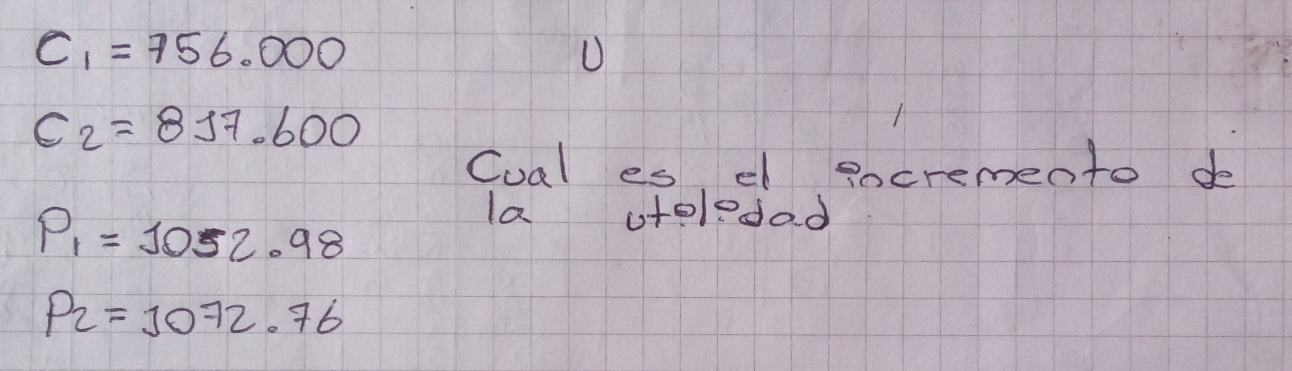 C1 = 756.000
U
C2 = 817.600
Cual es el incremento de
la utilidad
P1 = 1052.98
P2 = 1072.76